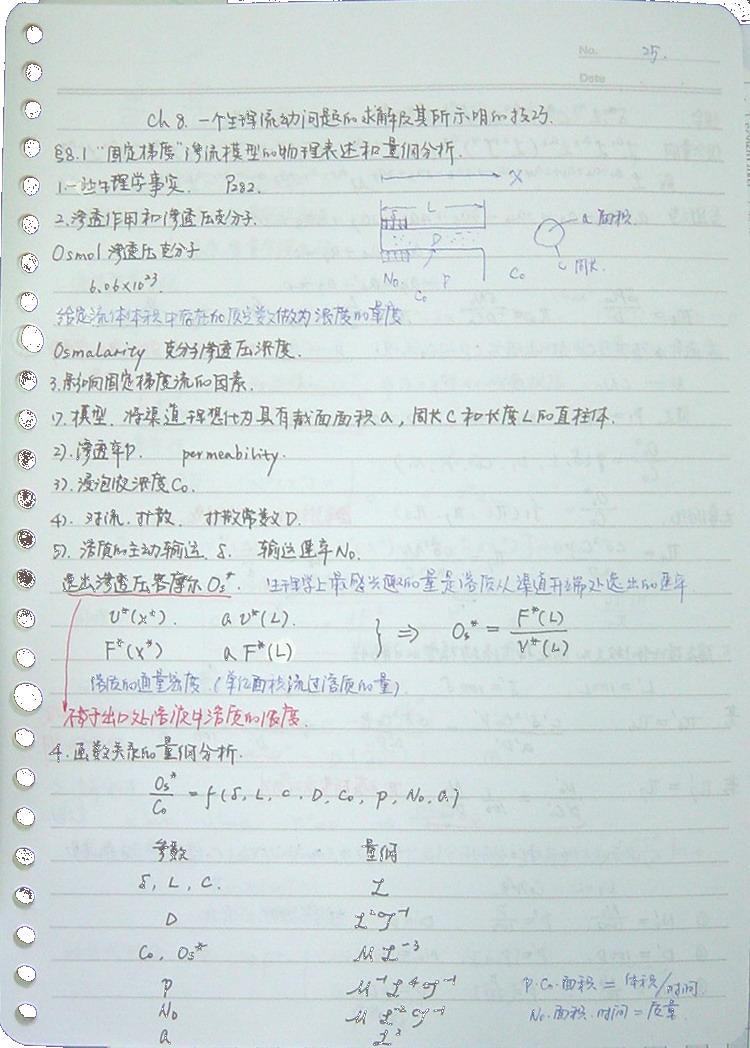 No. 25.
Date
Ch 8. 一个生理流动问题的求解及其所示明的技巧.
§8.1 "固定梯度"渗流模型的物理表述和量纲分析.
1. 一些生理学事实. P282.
X
2. 渗透作用和渗透压克分子.
L
a 面积.
P
C 周长.
Osmol 渗透压克分子
No P Co
Co
6.06×10²³
给定流体体积中存在的质点数做为浓度的单度
Osmalarity 克分子渗透压浓度.
3. 影响固定梯度流的因素.
1). 模型. 将渠道理想化为具有截面面积a, 周长C和长度L的直柱体.
2). 渗透率P. permeability.
3). 浸泡液浓度Co.
4). 对流. 扩散. 扩散常数D.
5). 溶质的主动输送. δ. 输送速率No.
逸出渗透压容摩尔Os*. 生理学上最感兴趣的量是溶质从渠道开端处逸出的速率
v*(x*). a v*(L).
F*(x*) a F*(L)
} ⇒ Os* = F*(L) / V*(L)
溶质的通量密度. (单位面积流过溶质的量)
不等于出口处溶液中溶质的浓度.
4. 函数关系的量纲分析.
Os*/Co = f(δ, L, c, D, Co, P, No, a.)
参数 量纲
δ, L, C. L
D L²T⁻¹
Co, Os* M L⁻³
P M⁻¹L⁴T⁻¹ P·Co·面积 = 体积/时间.
No M L⁻²T⁻¹ No·面积·时间 = 质量.
a L²